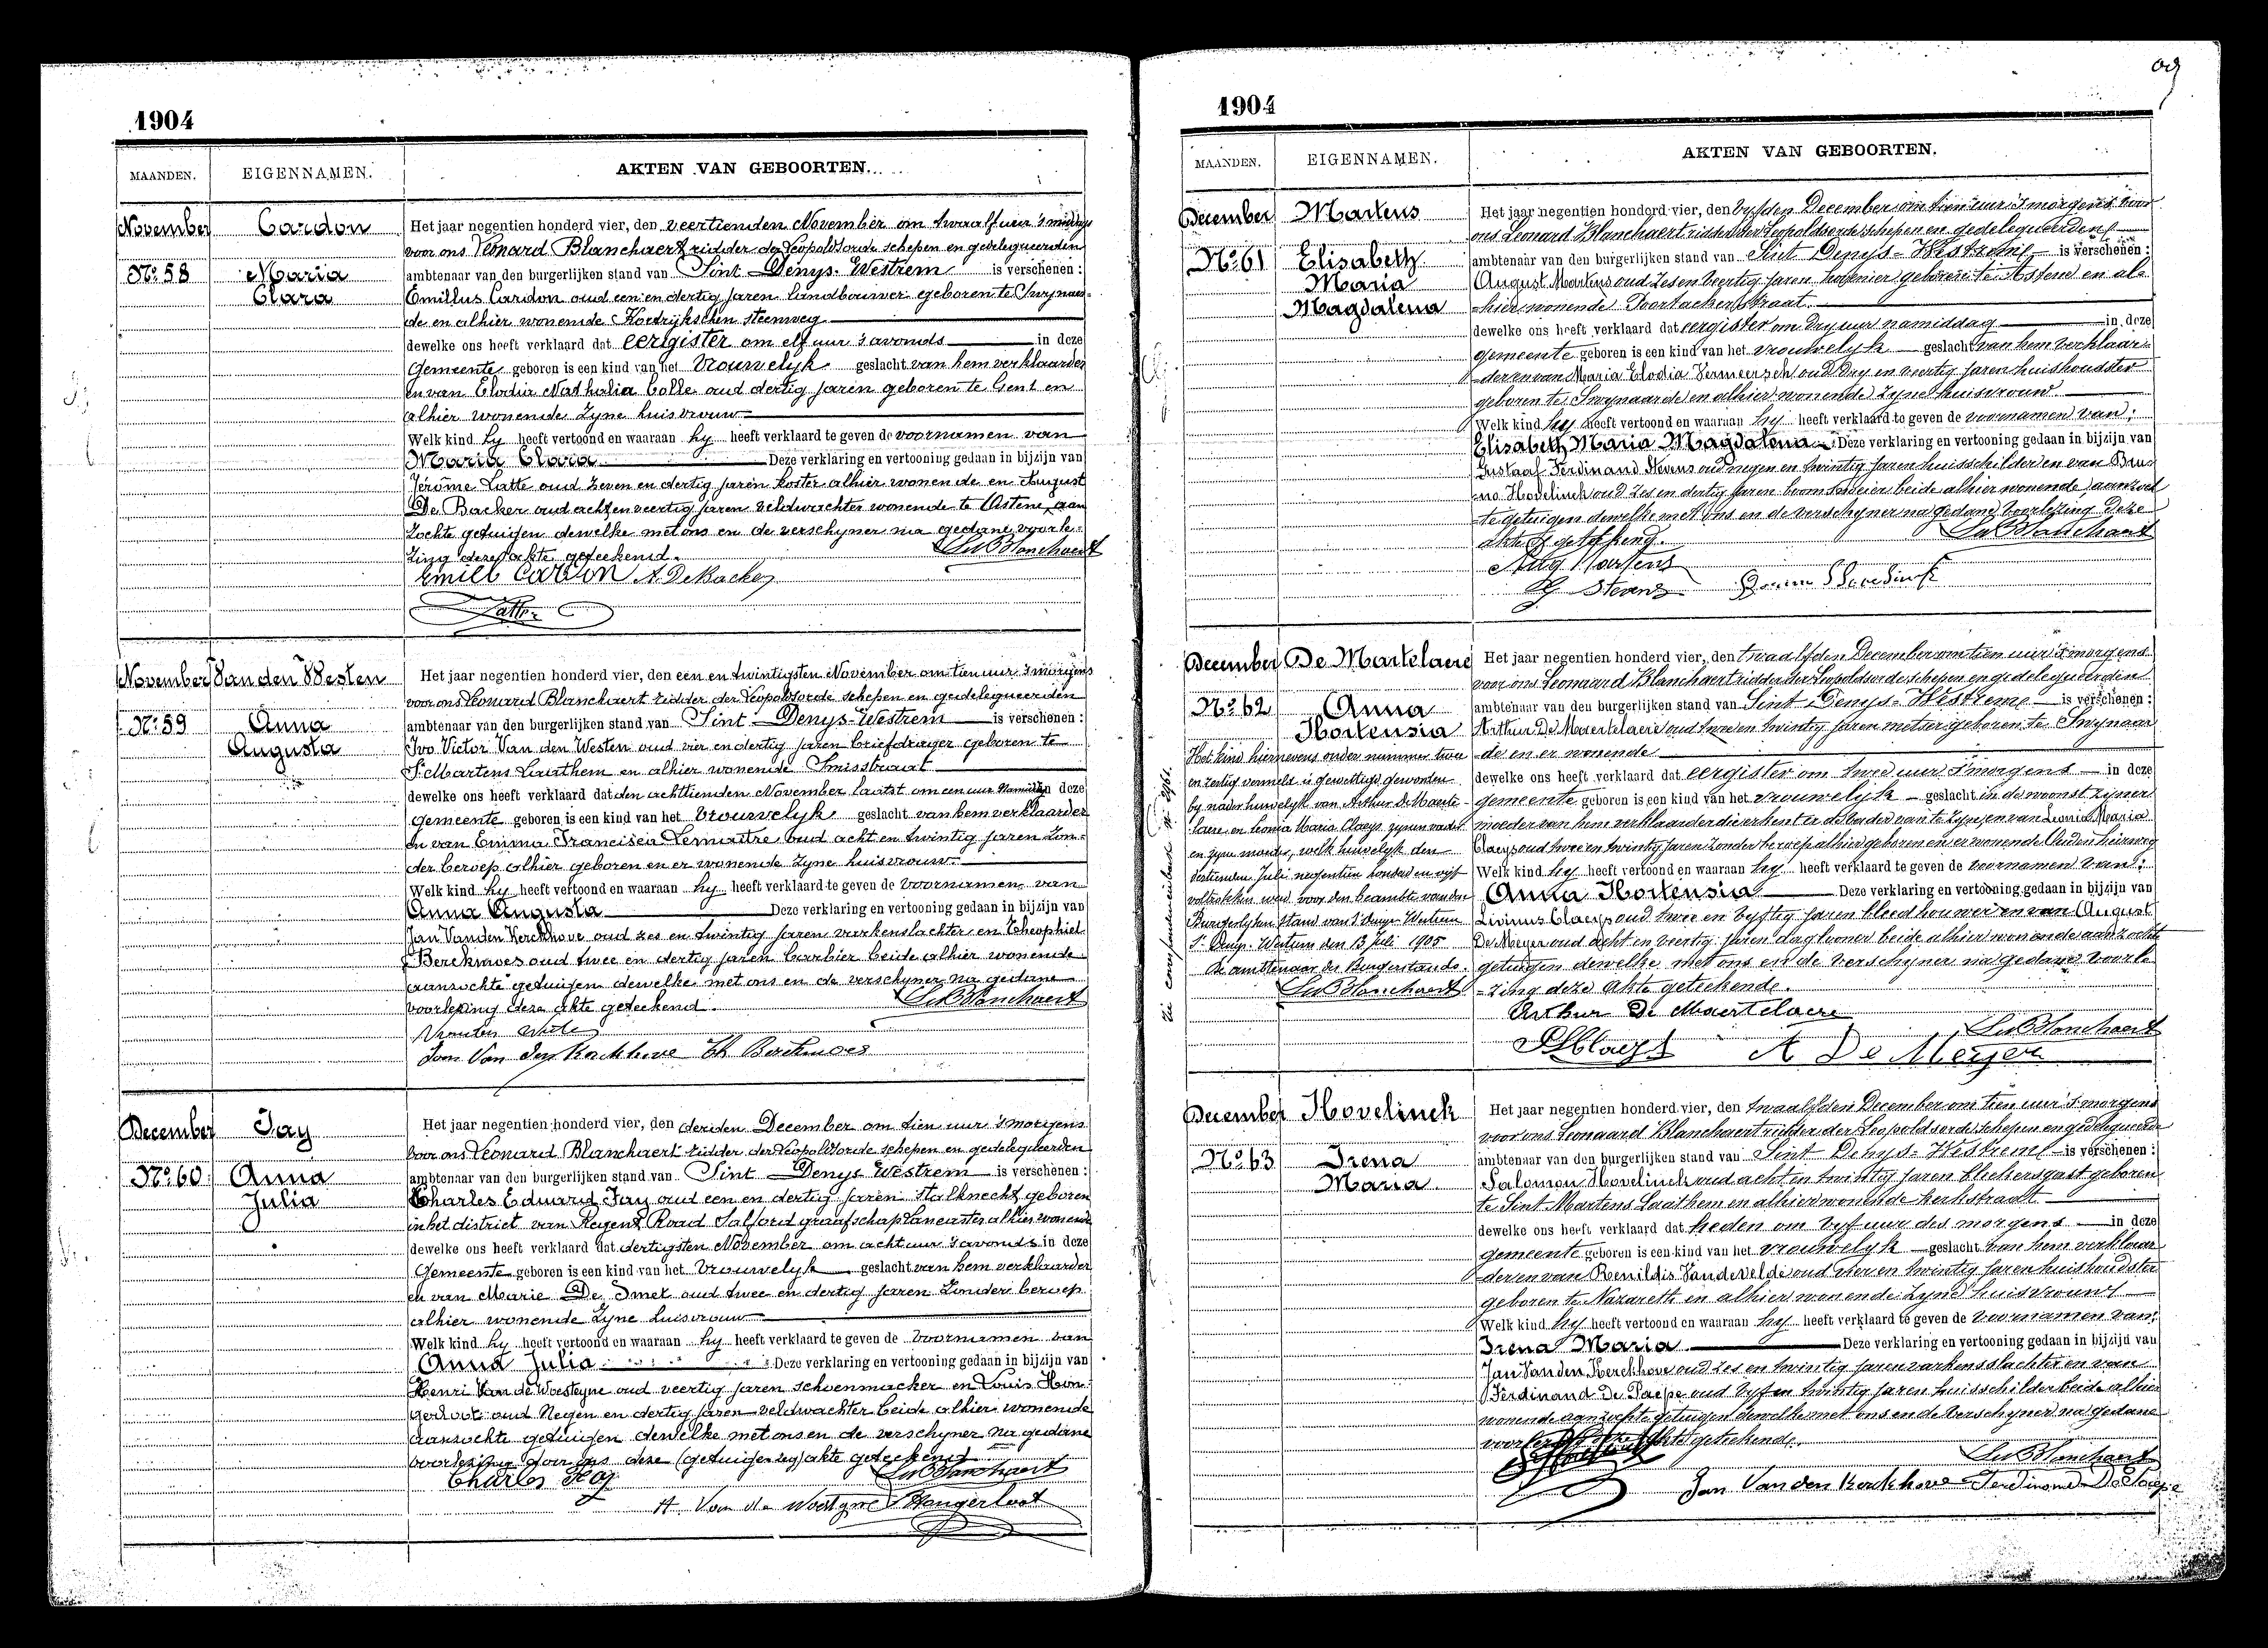 1904
MAANDEN. EIGENNAMEN. AKTEN VAN GEBOORTEN.
November Cardon
Nº 58 Maria
Clara
Het jaar negentien honderd vier, den veertienden November om twaalf uur 's middags
voor ons Leonard Blanchaert ridder der Leopoldsorde schepen en gedelegueerden
ambtenaar van den burgerlijken stand van Sint Denys-Westrem is verschenen :
Emillus Cardon oud een en dertig jaren landbouwer geboren te Swynaer-
de en alhier wonende Kortrijkschen steenweg
dewelke ons heeft verklaard dat eergister om elf uur 's avonds in deze
Gemeente geboren is een kind van het Vrouwelyk geslacht van hem verklaarder
en van Elodia Nathalia Colle oud dertig jaren geboren te Gent en
alhier wonende zyne huisvrouw
Welk kind hy heeft vertoond en waaraan hy heeft verklaard te geven de voornamen van
Maria Clara Deze verklaring en vertooning gedaan in bijzijn van
Jérome Latte oud zeven en dertig jaren koster alhier wonende en August
De Backer oud acht en veertig jaren veldwachter wonende te Astene, aan
zochte getuigen dewelke met ons en de verschyner na gedane voorle-
zing deze akte geteekend.
Leo Blanchaert
Emill Cardon A. DeBacker
Latte
November Van den Westen
Nº 59 Anna
Augusta
Het jaar negentien honderd vier, den een en twintigsten November om tien uur 's morgens
voor ons Leonard Blanchaert ridder der Leopoldsorde schepen en gedelegueerden
ambtenaar van den burgerlijken stand van Sint Denys-Westrem is verschenen :
Ivo Victor Van den Westen oud vier en dertig jaren briefdrager geboren te
St Martens Laethem en alhier wonende Smisstraat
dewelke ons heeft verklaard dat den achttienden November laatst om een uur Namiddag in deze
Gemeente geboren is een kind van het Vrouwelyk geslacht van hem verklaarder
en van Emma Francisca Lemaitre oud acht en twintig jaren zon-
der beroep alhier geboren en er wonende zyne huisvrouw.
Welk kind hy heeft vertoond en waaraan hy heeft verklaard te geven de voornamen van
Anna Augusta Deze verklaring en vertooning gedaan in bijzijn van
Jan Vanden Kerckhove oud zes en twintig jaren varkenslachter en Theophiel
Berckmoes oud twee en dertig jaren barbier beide alhier wonende
aanzochte getuigen dewelke met ons en de verschyner na gedane
voorlezing deze akte geteekend.
Leo Blanchaert
Jan Van den Kerckhove Th Berckmoes
December Jay
Nº 60 Anna
Julia
Het jaar negentien honderd vier, den derden December om tien uur 's morgens
voor ons Leonard Blanchaert ridder der Leopoldsorde schepen en gedelegueerden
ambtenaar van den burgerlijken stand van Sint Denys Westrem is verschenen :
Charles Eduard Jay oud een en dertig jaren stalknecht geboren
in het district van Regent Road Salford graafschap Lancaster alhier wonende
dewelke ons heeft verklaard dat dertigsten November om acht uur 's avonds in deze
Gemeente geboren is een kind van het Vrouwelyk geslacht van hem verklaarder
en van Marie De Smet oud twee en dertig jaren zonder beroep
alhier wonende zyne huisvrouw
Welk kind hy heeft vertoond en waaraan hy heeft verklaard te geven de voornamen van
Anna Julia Deze verklaring en vertooning gedaan in bijzijn van
Henri Van de Woesteyne oud veertig jaren schoenmacker en Louis Hon-
gerloot oud Negen en dertig jaren veldwachter beide alhier wonende
aanzochte getuigen dewelke met ons en de verschyner na gedane
voorlezing deze akte geteekend
Charles Jay Leo Blanchaert
H. Van de Woestyne Hongerloot
1904
MAANDEN. EIGENNAMEN. AKTEN VAN GEBOORTEN.
December Martens
Nº 61 Elisabeth
Maria
Magdalena
Het jaar negentien honderd vier, den vyfden December om tien uur 's morgens voor
ons Leonard Blanchaert ridder der Leopoldsorde schepen en gedelegueerden
ambtenaar van den burgerlijken stand van Sint Denys-Westreme is verschenen :
August Martens oud zes en veertig jaren hovenier geboren te Astene en al-
hier wonende Poorlackerstraat
dewelke ons heeft verklaard dat eergister om dry uur namiddag in deze
gemeente geboren is een kind van het vrouwelyk geslacht van hem verklaar-
der en van Maria Elodia Vermeersch oud dry en veertig jaren huishoudster
geboren te Swynaerde en alhier wonende zyne huisvrouw
Welk kind hy heeft vertoond en waaraan hy heeft verklaard te geven de voornamen van :
Elisabeth Maria Magdalena Deze verklaring en vertooning gedaan in bijzijn van
Gustaaf Ferdinand Stevens oud negen en twintig jaren huisschilder en van Bru-
no Hovelinck oud zes en dertig jaren boomkweeker beide alhier wonende, aanzoch
te getuigen dewelke met ons en de verschyner na gedane voorlezing deze
akte geteekend.
Leo Blanchaert
Aug Martens
G Stevens Bruno Hovelinck
December De Martelaere
Nº 62 Anna
Hortensia
Het kind hiernevens onder nummer twee
en zestig vermeld is gewettigd geworden
by nader huwelyk van Arthur De Maerte-
laere en Leonia Maria Claeys zynen vader
en zyne moeder, welk huwelyk den
dertienden Juli negentien honderd en vyf
voltrokken werd voor den beambte van den
Burgerlyken stand van St Denys-Westrem
St Denys-Westrem den 13 Juli 1905
De ambtenaar der Burgerstands.
Leo Blanchaert
Het jaar negentien honderd vier, den twaalfden December om tien uur 's morgens
voor ons Leonaard Blanchaert ridder der Leopoldsorde schepen en gedelegueerden
ambtenaar van den burgerlijken stand van Sint Denys-Westreme is verschenen :
Arthur De Maertelaere oud twee en twintig jaren metser geboren te Swynaer
de en er wonende
dewelke ons heeft verklaard dat eergister om twee uur 's morgens in deze
gemeente geboren is een kind van het vrouwelyk geslacht in de woonst zyner
moeder van hem verklaarder die erkent er de vader van te zyn en van Leonia Maria
Claeys oud twee en twintig jaren zonder beroep alhier geboren en er wonende Ouden heirweg
Welk kind hy heeft vertoond en waaraan hy heeft verklaard te geven de voornamen van :
Anna Hortensia Deze verklaring en vertooning gedaan in bijzijn van
Livinus Claeys oud twee en vyftig jaren bleekhouwer en van August
De Meyer oud acht en veertig jaren dagloner beide alhier wonende aanzochte
getuigen dewelke met ons en de verschyner na gedane voorle
-zing deze akte geteekende.
Arthur De Maertelaere
Leo Blanchaert
Claeys A De Meyer
December Hovelinck
Nº 63 Irena
Maria
Het jaar negentien honderd vier, den twaalfden December om tien uur 's morgens
voor ons Leonaard Blanchaert ridder der Leopoldsorde schepen en gedelegueerden
ambtenaar van den burgerlijken stand van Sint Denys-Westreme is verschenen :
Salomon Hovelinck oud acht en twintig jaren blekersgast geboren
te Sint Martens Laethem en alhier wonende kerkstraat
dewelke ons heeft verklaard dat heden om vyf uur des morgens in deze
gemeente geboren is een kind van het vrouwelyk geslacht van hem verklaar
der en van Renildis Vandevelde oud vier en twintig jaren huishoudster
geboren te Nazareth en alhier wonende zyne huisvrouw
Welk kind hy heeft vertoond en waaraan hy heeft verklaard te geven de voornamen van :
Irena Maria Deze verklaring en vertooning gedaan in bijzijn van
Jan Vanden Kerckhove oud zes en twintig jaren varkensslachter en van
Ferdinand De Paepe oud vyf en twintig jaren huisschilder beide alhier
wonende aanzochte getuigen dewelke met ons en de verschyner na gedane
voorlezing deze akte geteekende.
Leo Blanchaert
Jan Van den Kerckhove Ferdinand De Paepe